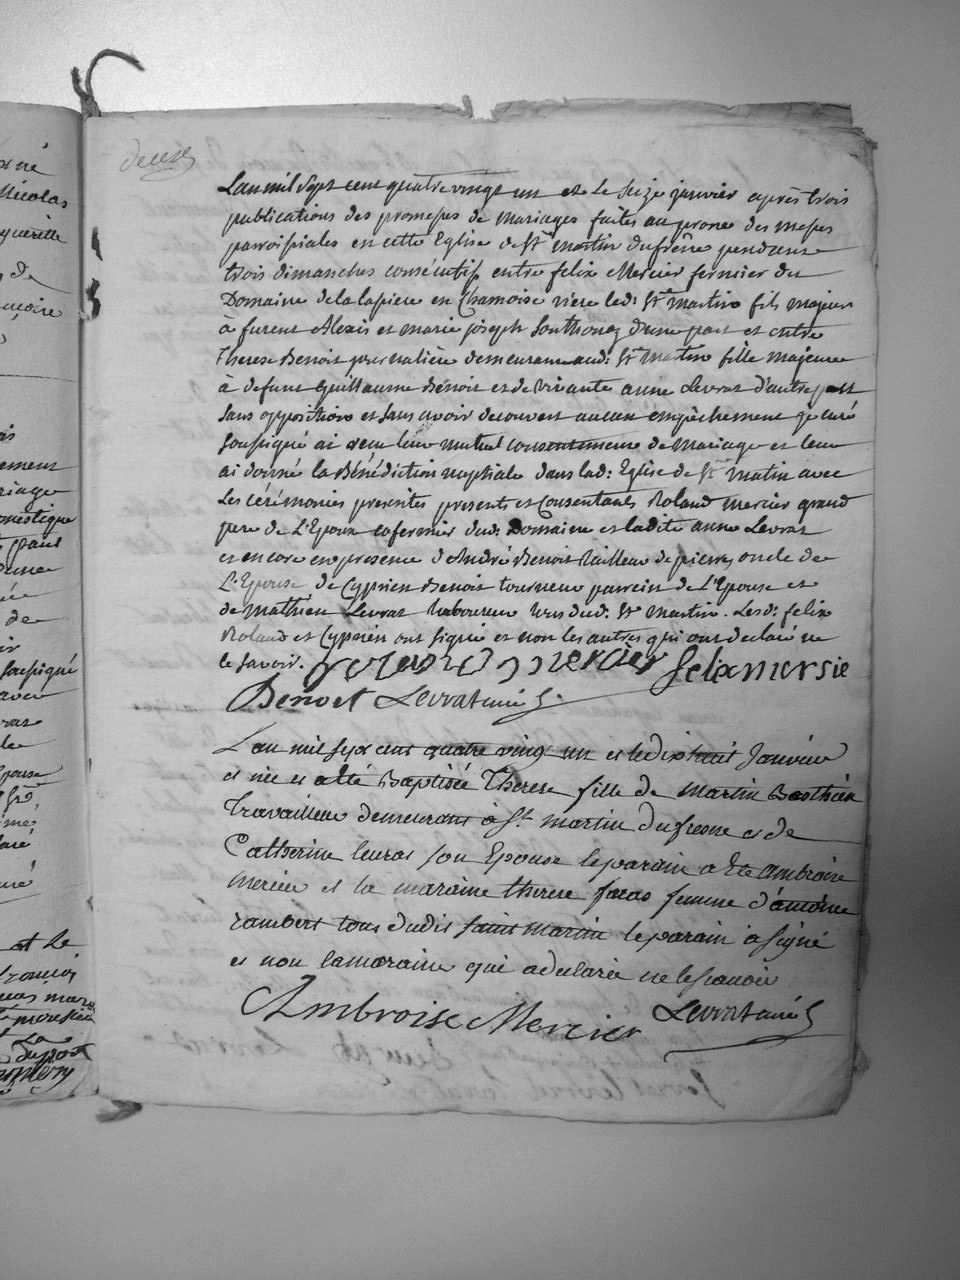 né
Nicolas
de
L'an mil Sept cent quatre vingt un et le Seize janvier après trois
publications des promesses de mariages faites au prone des messes
parroissiales en cette Eglise de St martin dufrêne pendant
trois dimanches consécutifs entre felix Mercier fermier du
Domaine dela lapiere en Chamoise riere led: St martin fils majeur
à furent Alexis et marie joseph Southonaz d'une part et entre
Therese Benoit journalière demeurante aud: St martin fille majeure
à defunt Guillaume Benoit et de vivante anne Levrat d'autre part
sans opposition et sans avoir decouvert aucun empêchement je curé
soussigné ai reçu leur mutuel consentement de mariage et leur
ai donné la Bénédiction nuptiale dans lad: Eglise de St matin avec
les cérémonies presentes presents et Consentants Roland mercier grand
pere de L'Epoux cofermier dud: Domaine et ladite anne Levrat
et encore en presence d'André Benoit tailleur de pierres oncle de
L'Epouse, de Cyprien Benoit tourneur parrein de L'Epouse et
de mathieu Levrat laboureur tous dud: St martin. Lesd: felix
Roland et Cyprien ont signé et non les autres qui ont declaré ne
le savoir. Roland mercier felix mersie
Benoit Levrat curé
L'an mil sept cent quatre vingt un et le dix huit Janvier
est née et a été Baptisée Therese fille de martin Berthier
travailleur demeurant à St martin du fresne et de
Catherine levrat son Epouse le parain a été ambroise
mercier et la maraine therese femme d'antoine
rambert tous dudit saint martin le parain a signé
et non lamaraine qui a declarée ne le savoir
Ambroise Mercier Levrat curé